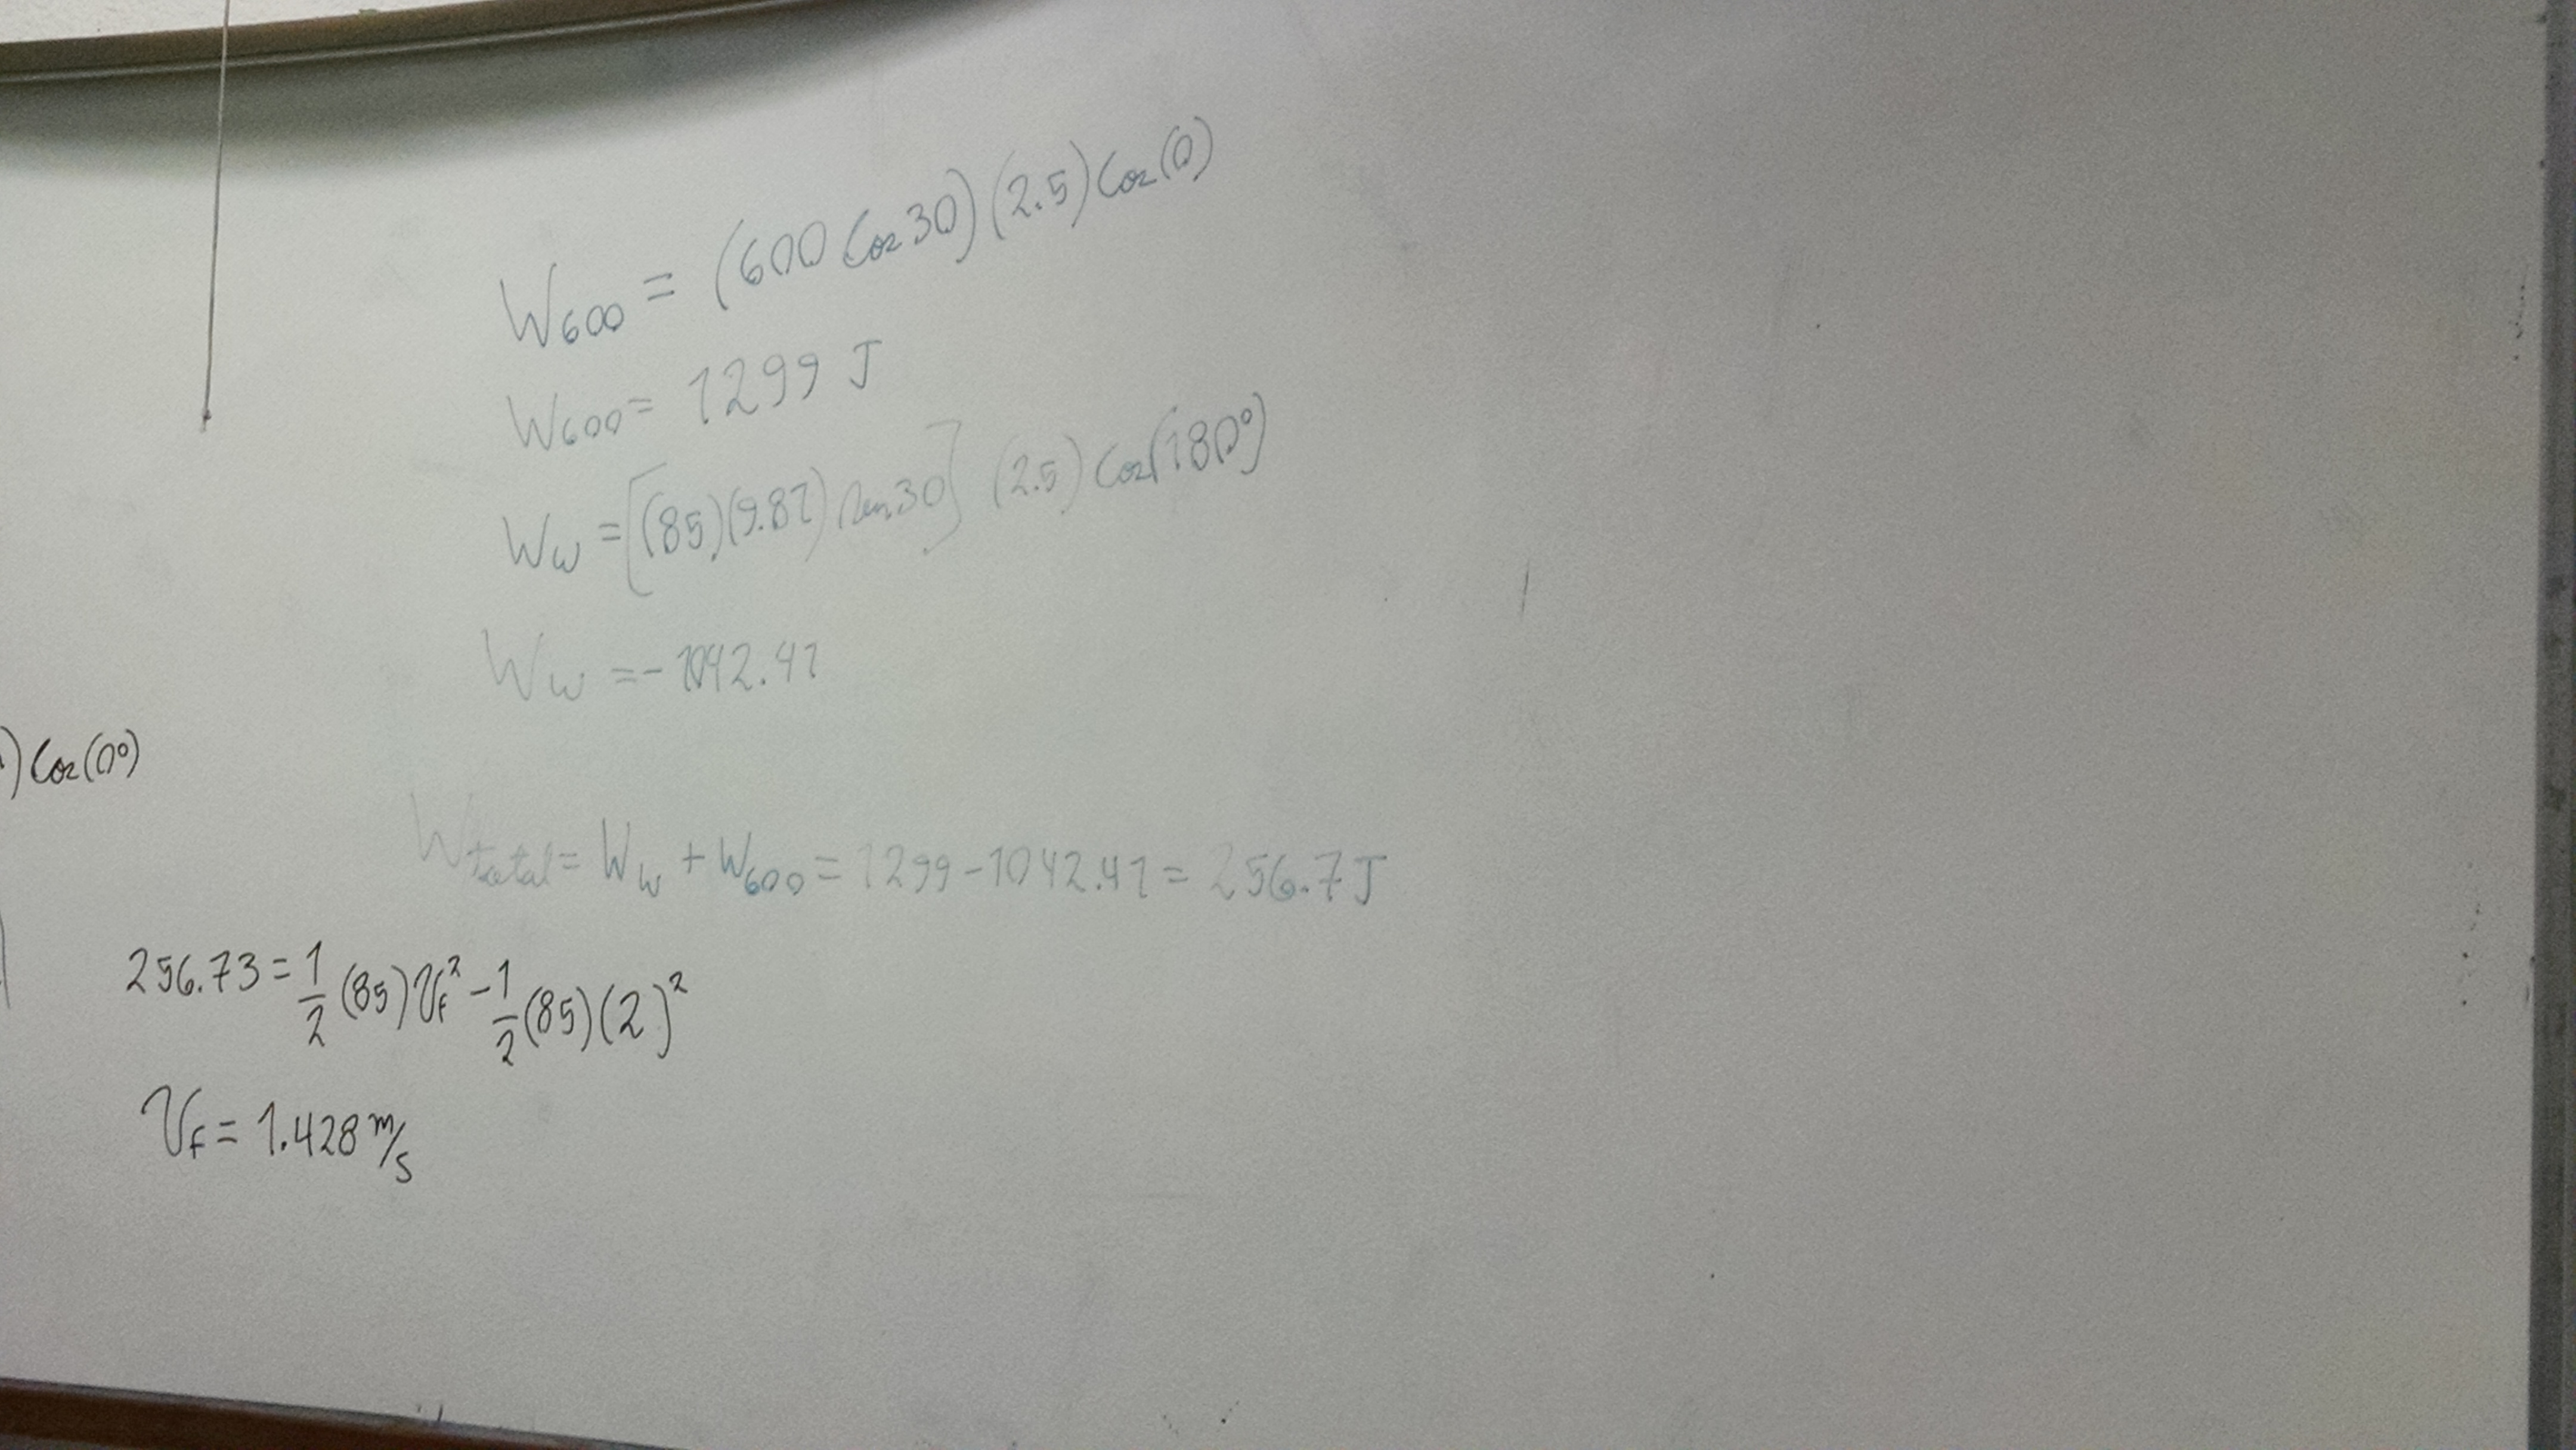 W600 = (600 Cos 30) (2.5) Cos (0)
W600 = 1299 J
Ww = [(85)(9.81) Sen 30] (2.5) Cos (180°)
Ww = - 1042.41
) Cos (0°)
Wtotal = Ww + W600 = 1299 - 1042.41 = 256.7 J
256.73 = 1/2 (85) Vf² - 1/2 (85) (2)²
Vf = 1.428 m/s